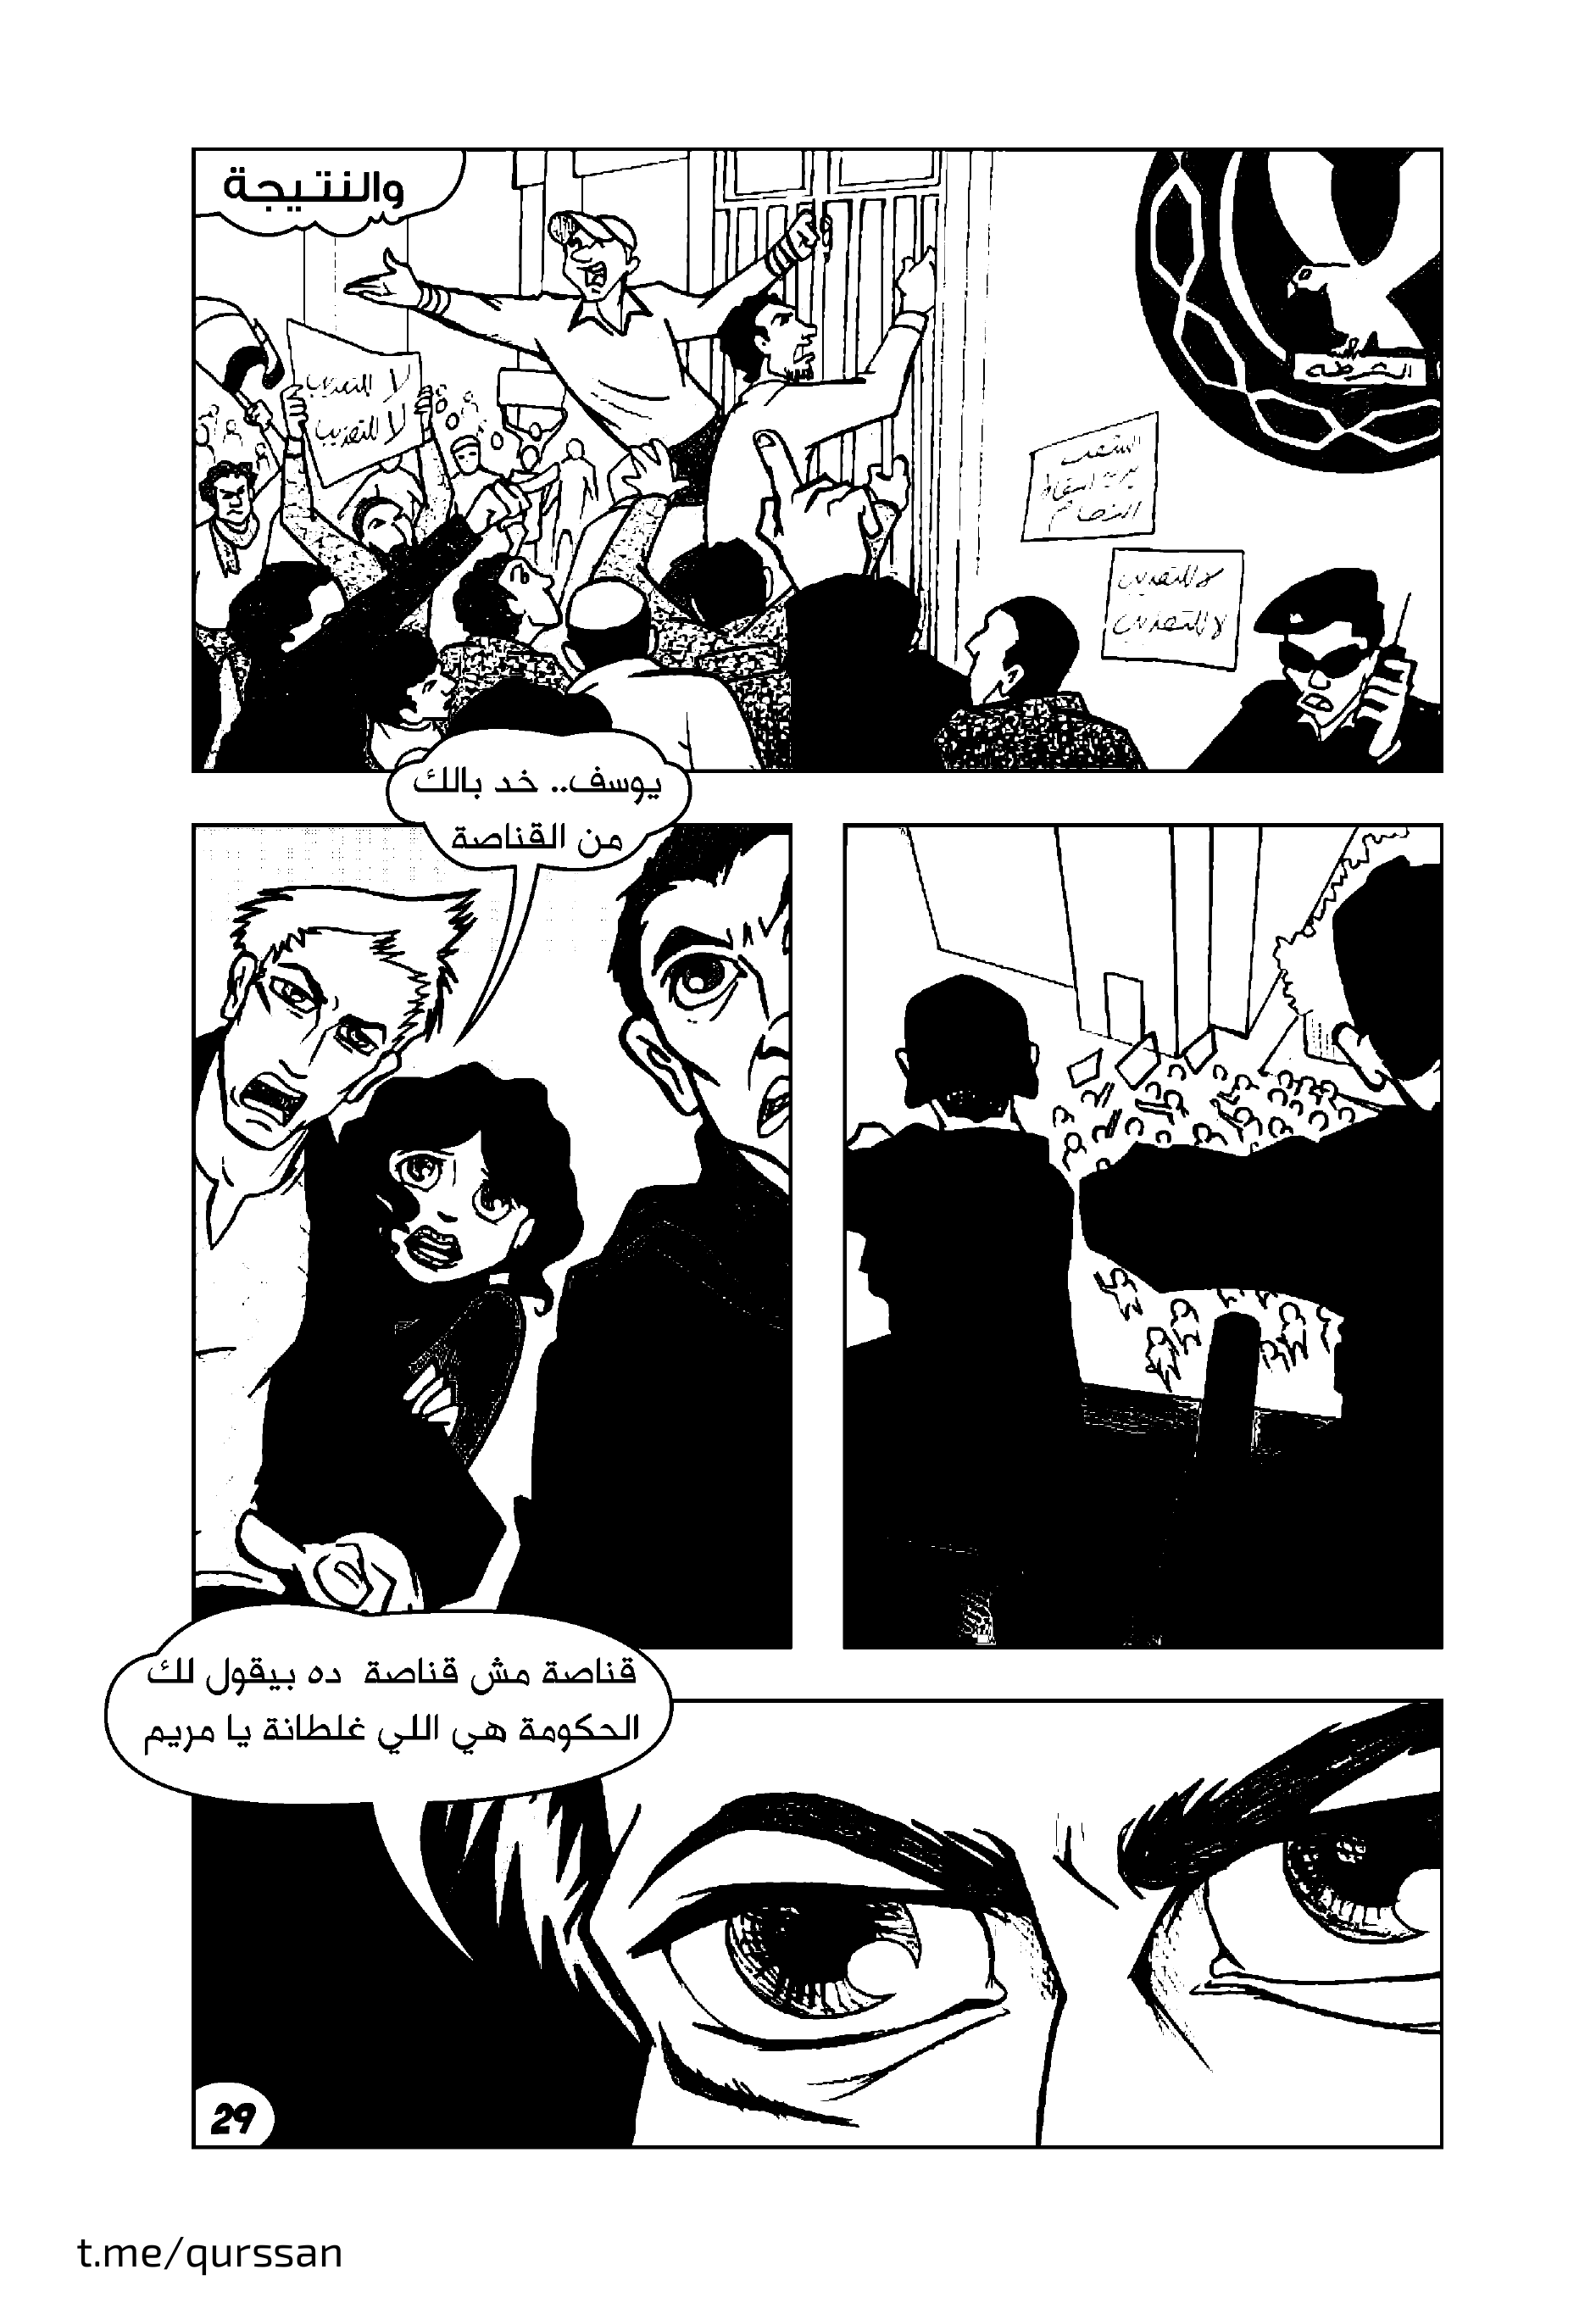 والنتيجة
الشرطة
لا للتعذيب
لا للتعذيب
الشعب
يريد اسقاط
النظام
لا للتعذيب
لا للتعذيب
يوسف.. خد بالك
من القناصة
قناصة مش قناصة ده بيقول لك
الحكومة هي اللي غلطانة يا مريم
29
t.me/qurssan